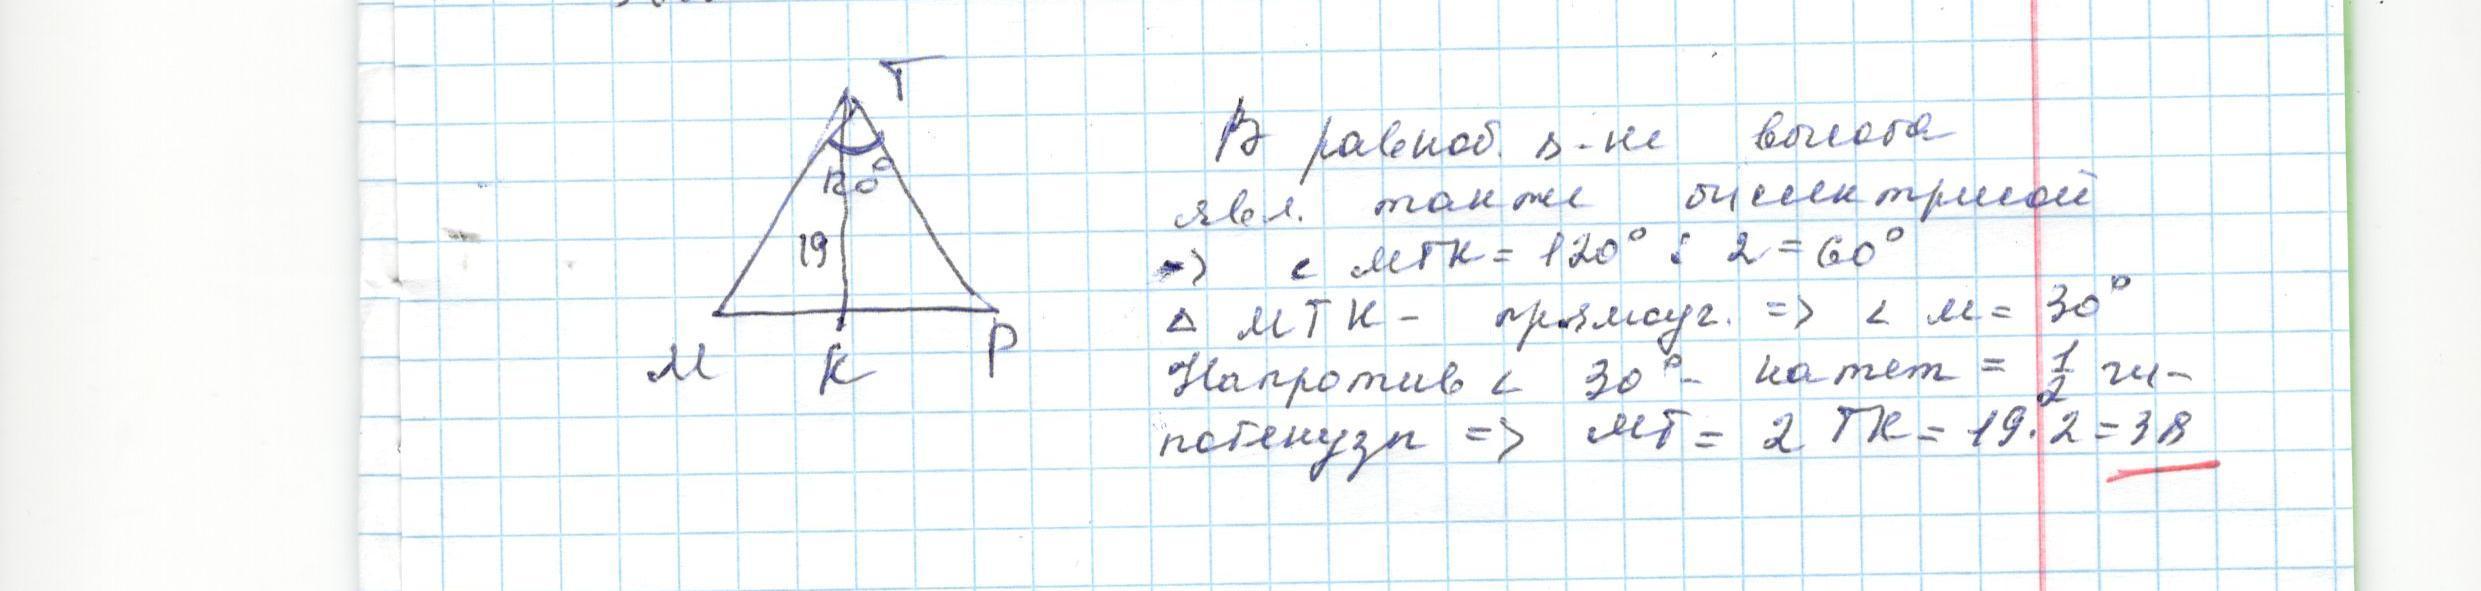 Т
120°
19
М К Р
В равноб. Δ-ке высота
явл. также биссектрисой
=> < МТК = 120° : 2 = 60°
Δ МТК - прямоуг. => < М = 30°
Напротив < 30° - катет = 1/2 ги-
потенузы => МТ = 2 ТК = 19 · 2 = 38